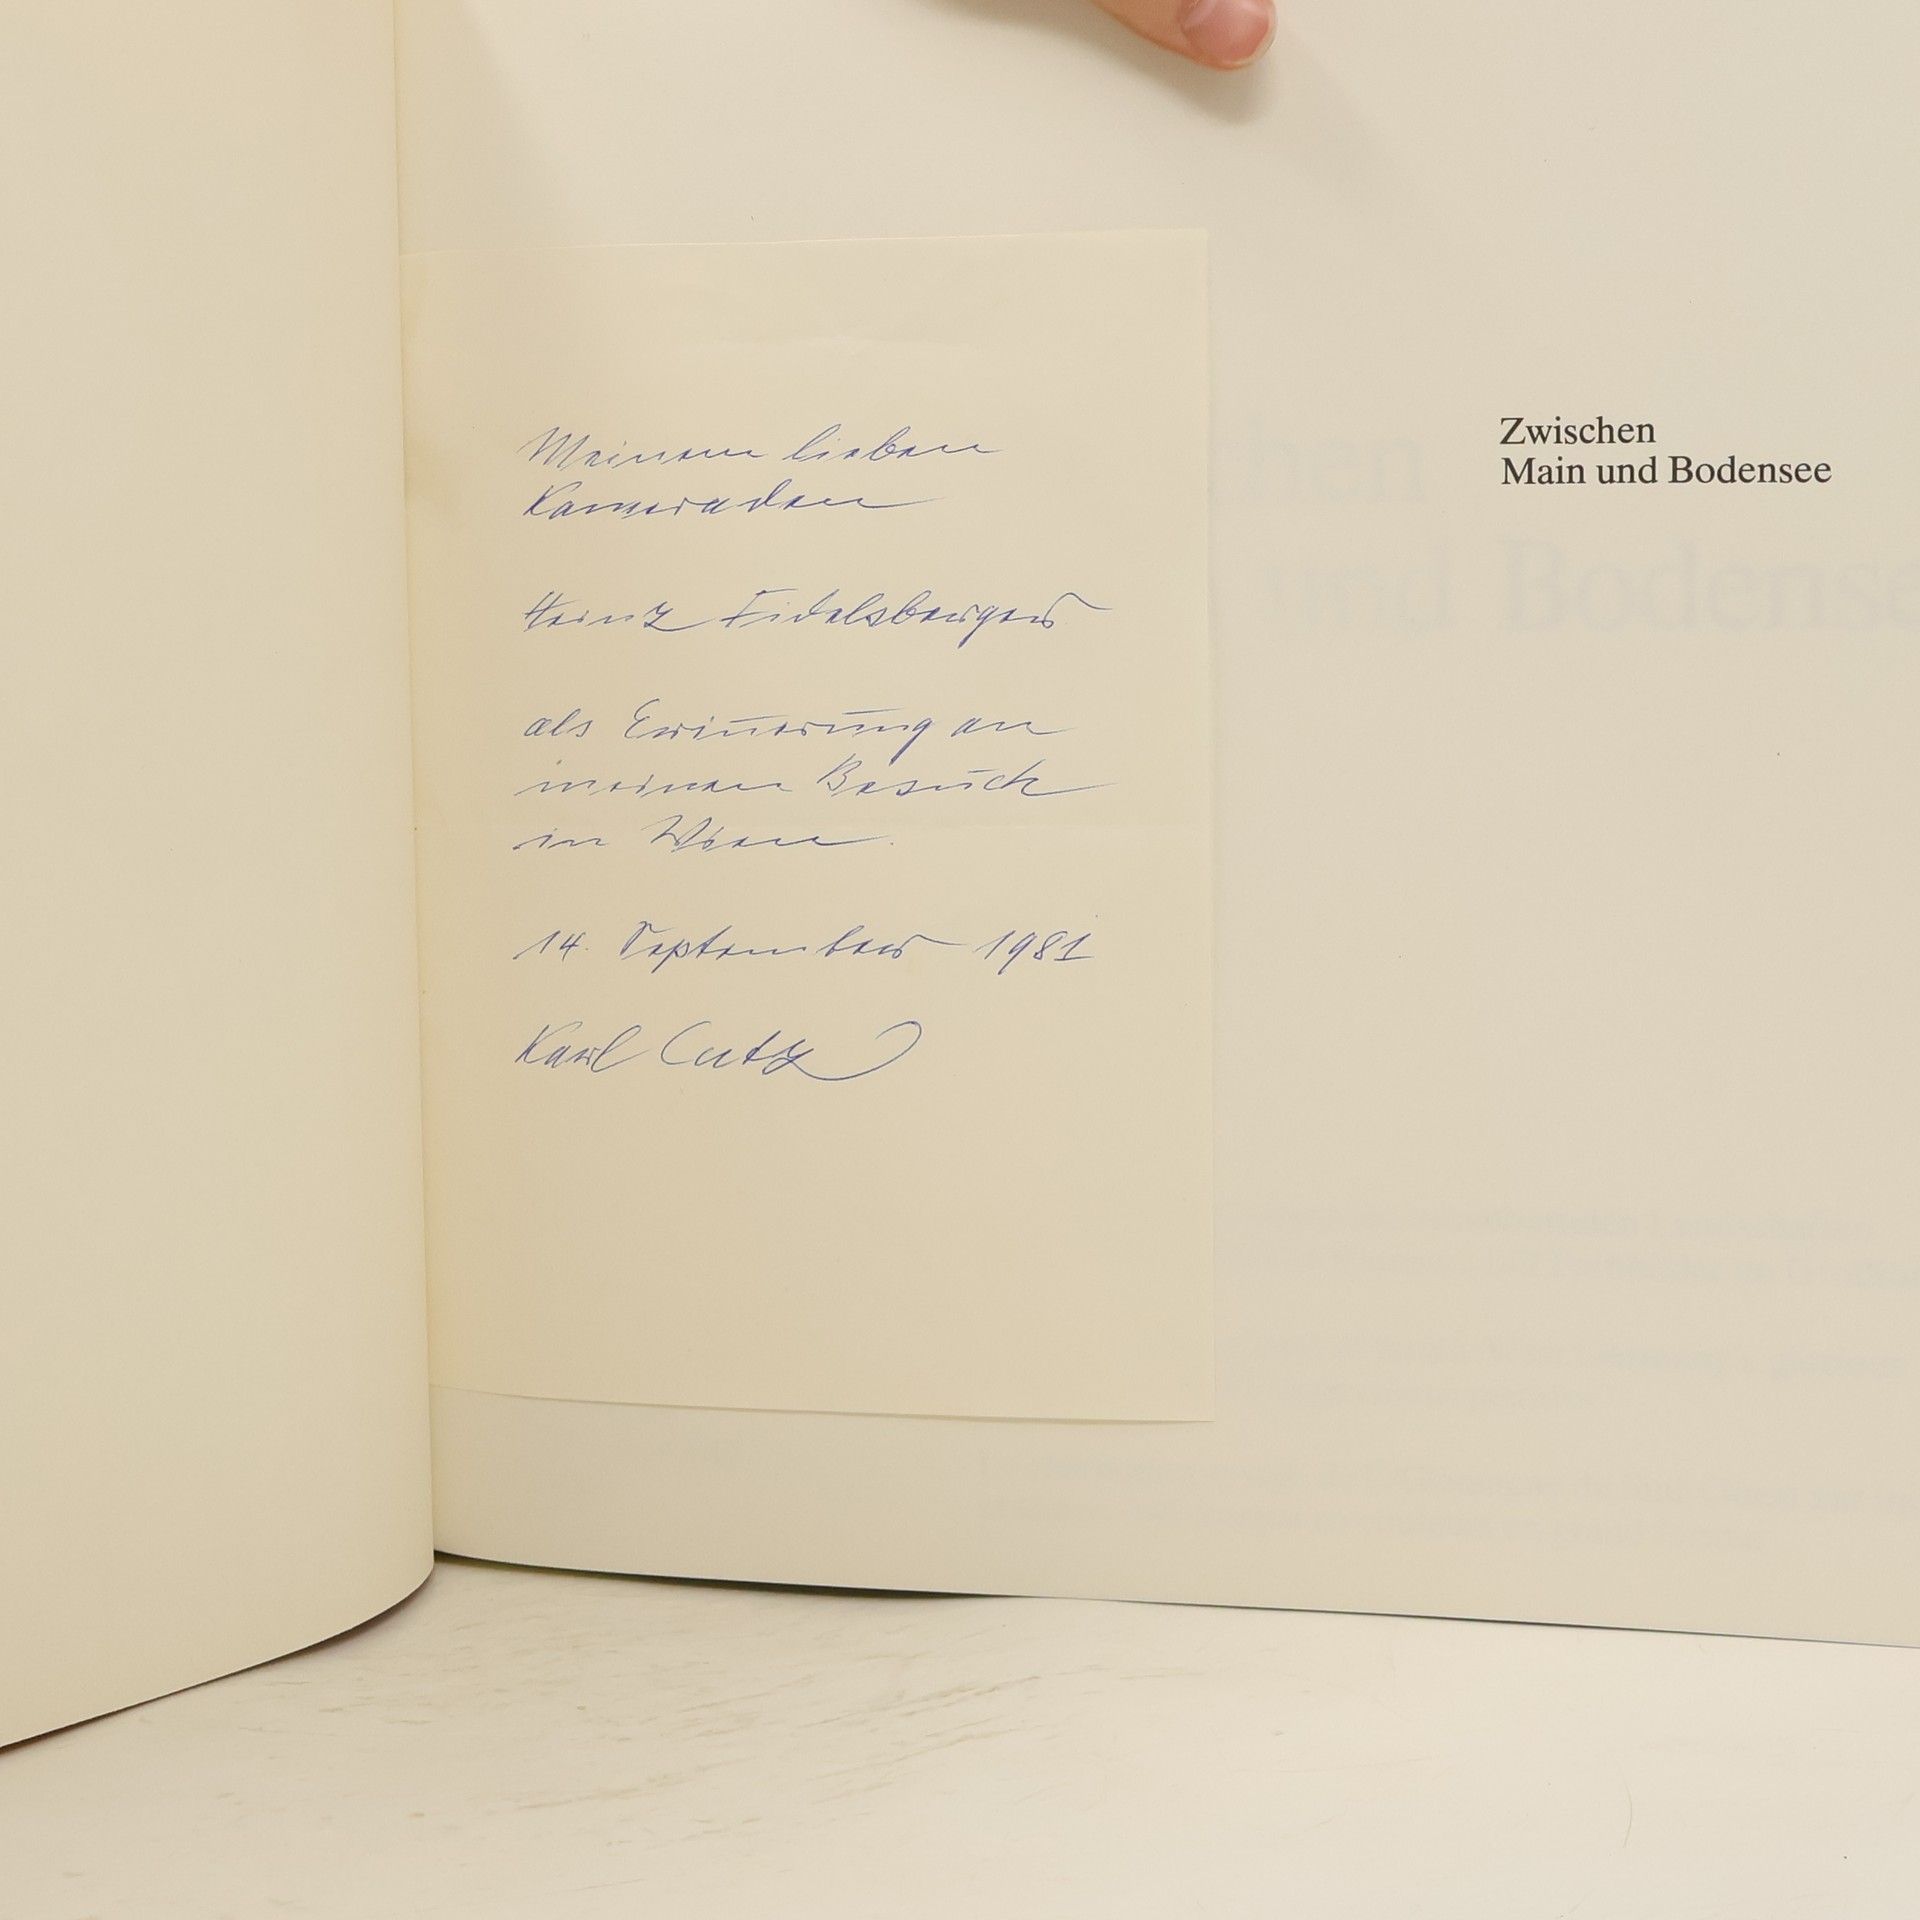 Meinem lieben
Kameraden
Heinz Fidelsberger
als Erinnerung an
meinen Besuch
in Wien.
14. September 1981
Karl Cutz
Zwischen
Main und Bodensee